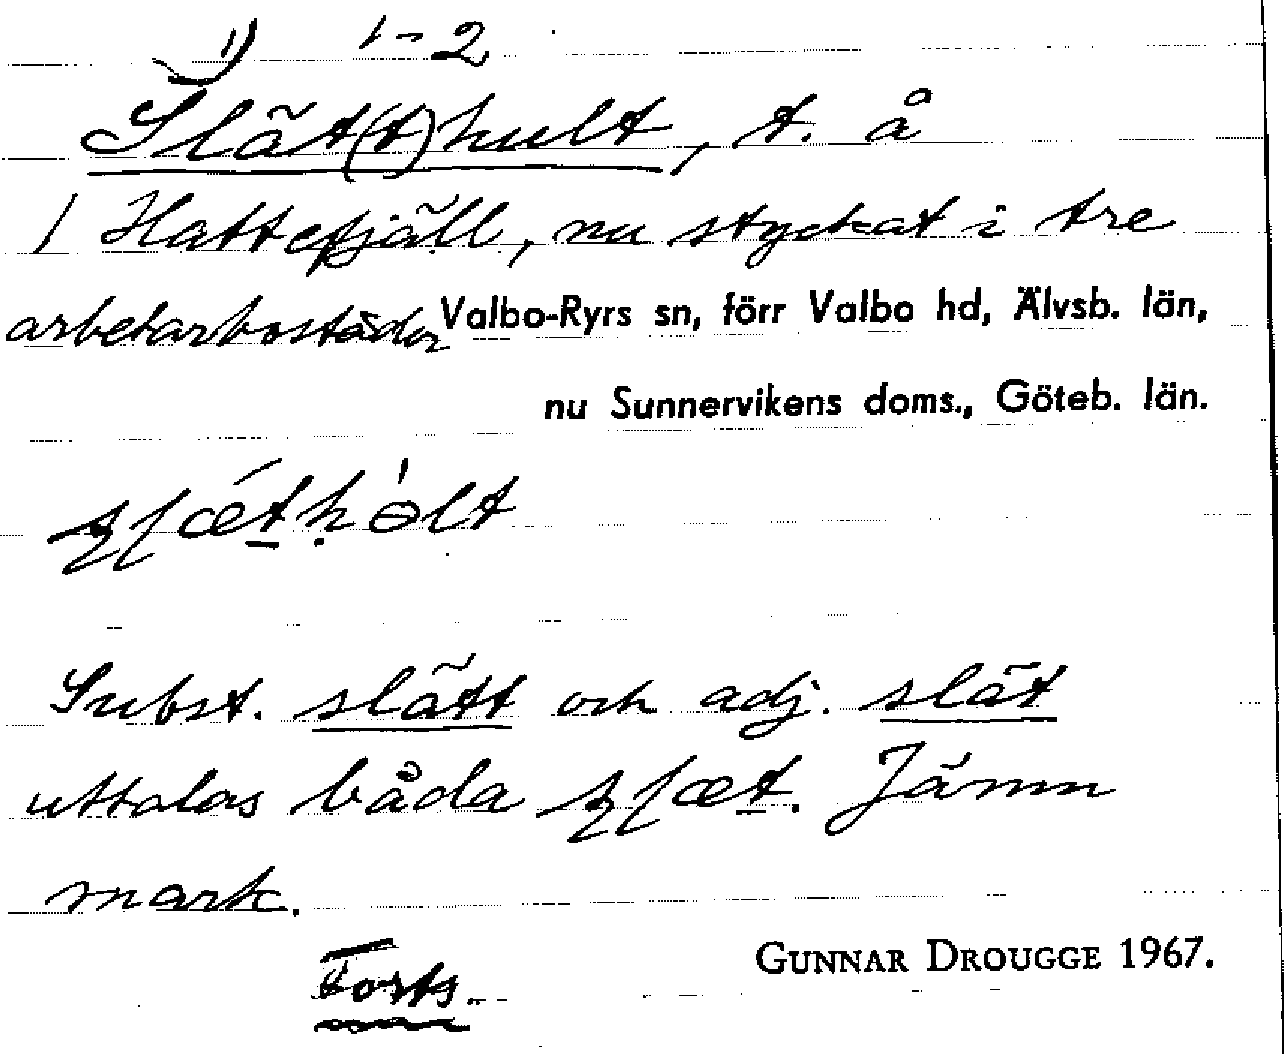 1) 1-2
Slät(t)hult, t. å
1 Hattefjäll, nu styckat i tre
arbetarbostäder Valbo-Ryrs sn, förr Valbo hd, Älvsb. län,
nu Sunnervikens doms., Göteb. län.
Subst. slätt och adj. slät
uttalas båda Jämn
mark.
Forts.
GUNNAR DROUGGE 1967.